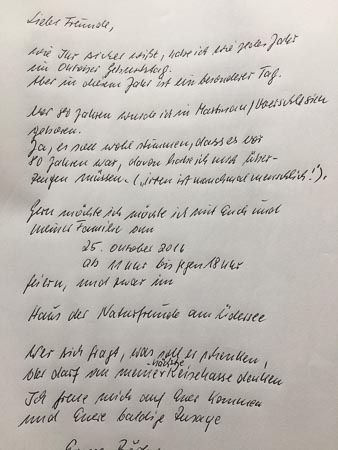 Liebe Freunde,
wie Ihr sicher wißt, habe ich wie jedes Jahr
im Oktober Geburtstag.
Aber in diesem Jahr ist ein besonderer Tag.
Vor 80 Jahren wurde ich in
geboren.
Ja, es soll wohl stimmen, dass es vor
80 Jahren war, davon habe ich mich über-
zeugen müssen. („irren ist manchmal menschlich“).
Gern möchte ich möchte ich mit Euch und
meiner Familie am
25. Oktober 2016
ab 11 Uhr bis gegen 18 Uhr
feiern, und zwar im
Haus der Naturfreunde am Üdersee
Wer sich fragt, was soll er schenken,
der darf an meine nächste Reisekasse denken
Ich freue mich auf Euer Kommen
und Eure baldige Zusage